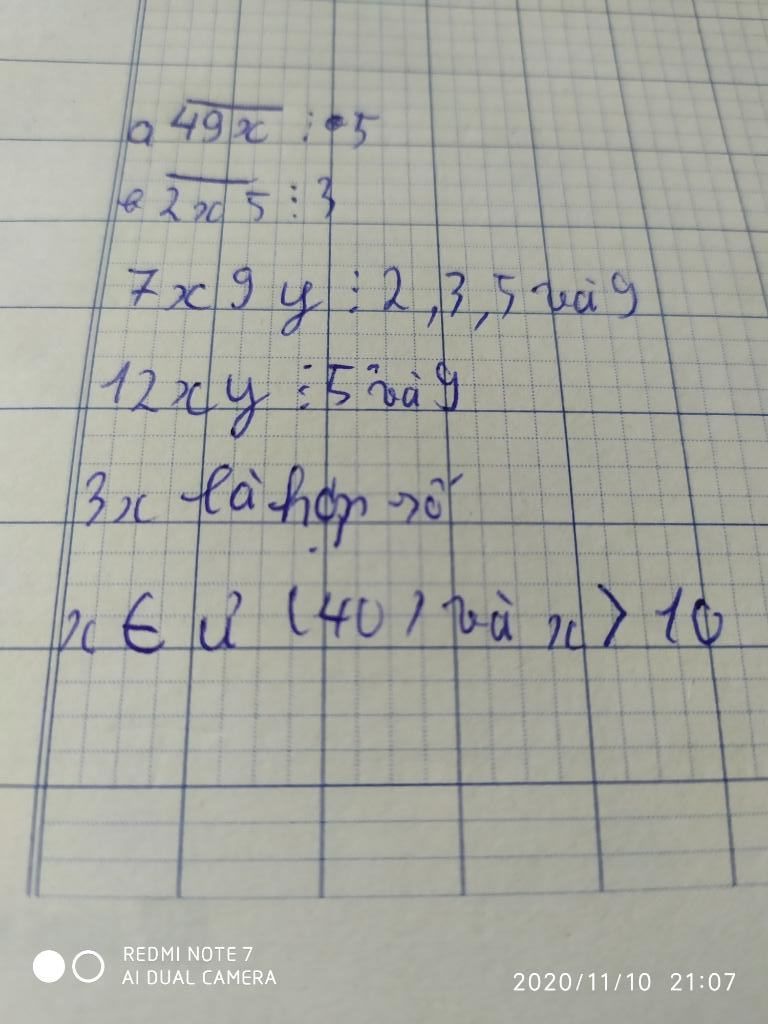 a 49x ⋮ 5
b 2x5 ⋮ 3
7x9y ⋮ 2,3,5 và 9
12xy ⋮ 5 và 9
3x là hợp số
x ∈ Ư (40) và x > 10
REDMI NOTE 7
AI DUAL CAMERA
2020/11/10 21:07